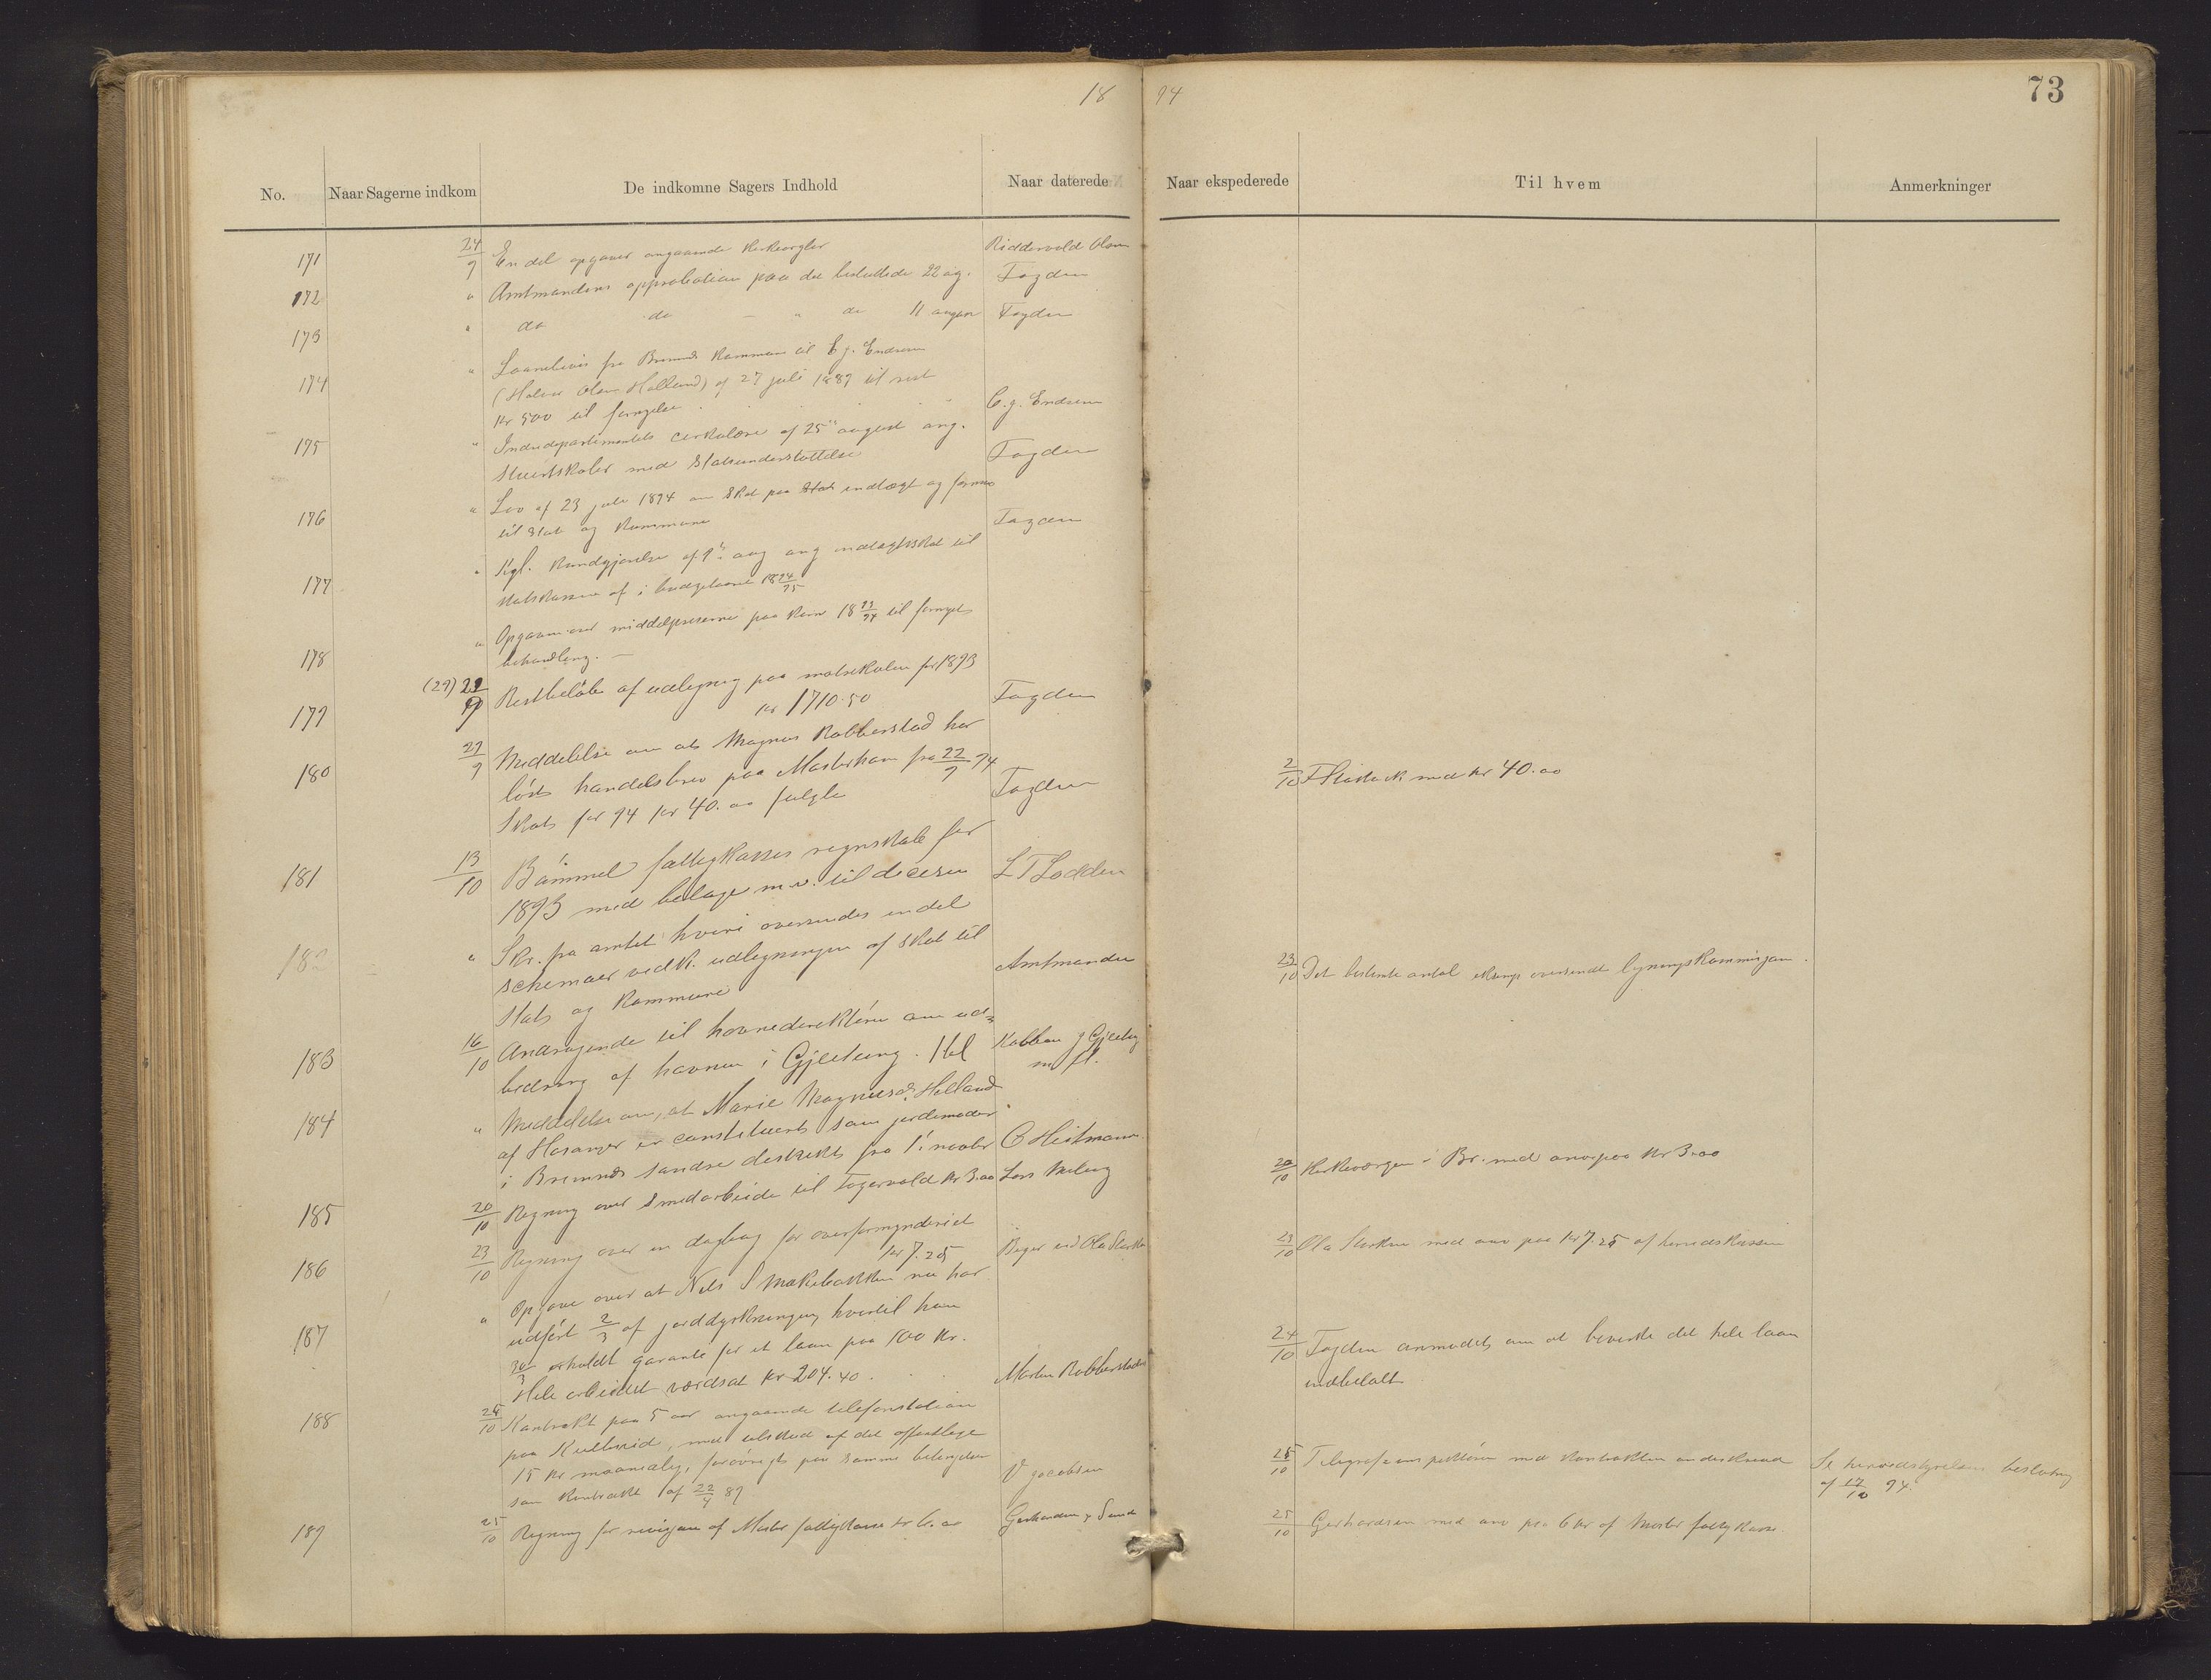 18 94
73
No. Naar Sagerne indkom De indkomne Sagers Indhold Naar daterede Naar ekspederede Til hvem Anmerkninger
171 24/9 En del opgaver angaaende Riddervold Olsen
172 " Amtmandens approbation paa det besluttede 22 aug. Fogden
173 " do do - " do 11 august Fogden
174 " Laanebevis fra Bremnes kommune til
af 27 juli 1889 til rest
kr 500 til fornyelse. C. J. Endresen
175 " Indredepartementets cirkulære af 25de august ang.
med Statsunderstøttelse Fogden
176 " Lov af 23 juli 1894 om Skat paa indtægt og formue
til Stat og Kommune Fogden
177 " Kgl. Kundgjørelse af 9de aug ang indtægtsskat til
Statskassen af i budgetaaret 1894/95
178 " Opgaven over middelpriserne paa korn 1893/94 til fornyet
behandling. -
179 (29) 29/9 Restbeløb af udligning paa matrikulen for 1893
kr 1710.50 Fogden
180 29/9 Meddelelse om at Magnus Robberstad har
løst handelsbrev paa Mosterhavn fra 22/9 94
Skat for 94 kr 40.00 følger Fogden
2/10 med kr 40.00
181 13/10 Bømmel fattigkasses regnskab for
1893 med bilage m.v. til decision L T Lodden
182 " Skr. fra amtet hvori oversendes endel
schemaer vedk. udligningen af skat til
Stat og Kommune Amtmanden
23/10 Det bestemte antal eksmp oversendt ligningskommisjonen.
183 16/10 Andragende til havnedirektøren om ud=
bedring af havnen i
m fl.
184 " Meddelelse om, at Marie Magnusd. Helland
af Hosanger er constitueret som jordemoder
i Bremnes søndre distrikt fra 1' novbr C Heitmann.
185 20/10 Regning over Smedarbeide til kr 3.00 Lars
20/10 Kirkevergen i Br. med anv paa kr 3.00
186 23/10 Regning over en dagbog for overformynderiet
kr 7.25
23/10 Ola med anv paa kr 7.25 af herredskassen
187 " Opgave over at Nels nu har
udført 2/3 af jorddyrkningen, hvortil han
30/3 erholdt garanti for et laan paa 500 kr.
Hele arbeidet værdsat kr 204.40. Morten Robberstad
24/10 Fogden anmodet om at bevirke det hele laan
indbetalt
188 24/10 Kontrakt paa 5 aar angaaende telefonstation
paa med tilskud af det offentlige
15 kr maanedlig, forøvrigt paa samme betingelser
som kontrakt af 22/9 89 V Jacobsen
25/10 med kontrakten underskrevet
Se herredstyrelsens beslutning
af 17/10 94.
189 25/10 Regning for revisjon af Moster fattigkasse kr 6.00
25/10 Gerhardsen med anv paa 6 kr af Moster fattigkasse.